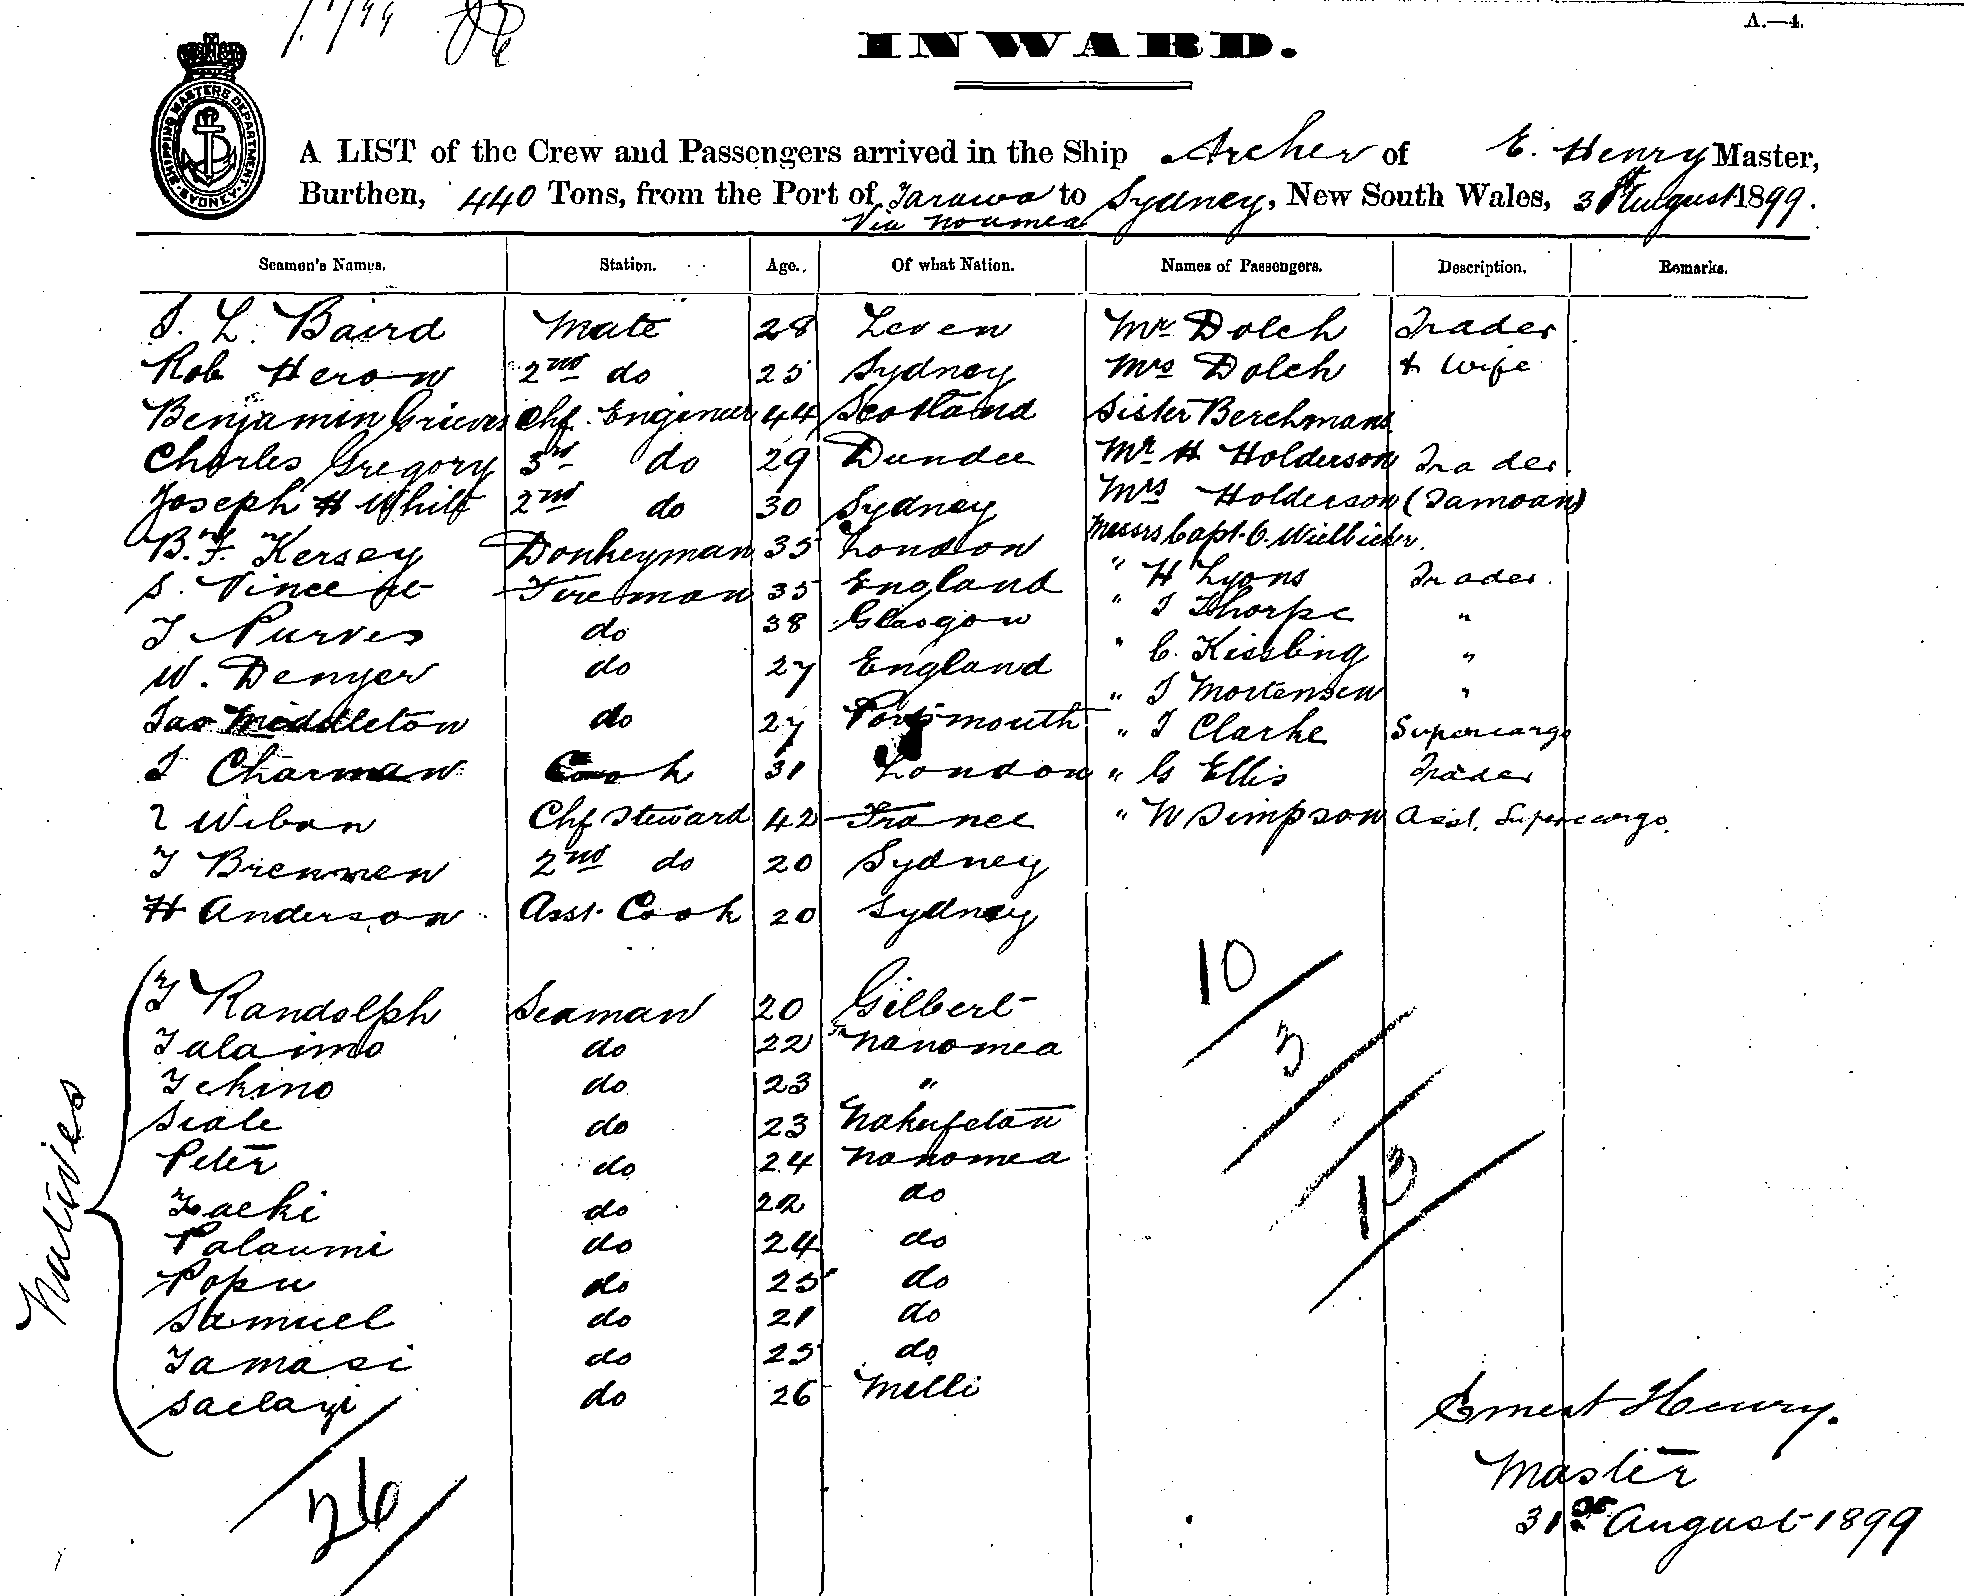 A.—4.
INWARD.
SHIPPING MASTERS DEPARTMENT
SYDNEY
A LIST of the Crew and Passengers arrived in the Ship Archer of E. Henry Master,
Burthen, 440 Tons, from the Port of Tarawa to Sydney, New South Wales, 31st August 1899.
Via Noumea
Seamen's Names. Station. Age. Of what Nation. Names of Passengers. Description. Remarks.
S. L. Baird Mate 28 Leven Mr Dolch Trader
Rob Heron 2nd do 25 Sydney Mrs Dolch & Wife
Benjamin Grieves Chf. Engineer 44 Scotland Sister Berchmans
Charles Gregory 3rd do 29 Dundee Mr H Holderson Trader.
Joseph H 2nd do 30 Sydney Mrs Holderson (Samoan)
B. F. Kersey Donkeyman 35 London Messrs Capt. C.
S. Vincent Fireman 35 England " H Lyons Trader.
J Purves do 38 Glasgow " J Thorpe "
W. Denyer do 27 England " C. Kissling "
Jas Middleton do 27 Portsmouth " J Mortensen "
J Charman Cook 31 London " J Clarke Supercargo
Chf Steward 42 France " G Ellis Trader
J Brennen 2nd do 20 Sydney " W Simpson Asst. Supercargo.
H Anderson Asst. Cook 20 Sydney
Natives
J Randolph Seaman 20 Gilbert
Talaimo do 22 Nanomea
Tekino do 23 "
Seale do 23 Nakufetau
Peter do 24 Nanomea
do 22 do
Palaumi do 24 do
Popu do 25 do
Samuel do 21 do
Tamasi do 25 do
do 26 Milli
10
3
13
26
Ernest Henry.
Master
31st August 1899